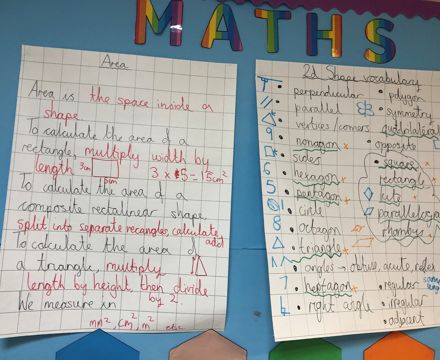 MATHS
Area
Area is the space inside a
shape
To calculate the area of a
rectangle, multiply width by
length 3cm 5cm 3 x 5 = 15cm²
To calculate the area of a
composite rectalinear shape,
split into separate recangles, calculate,
add
To calculate the area of
a triangle, multiply
length by height, then divide
by 2.
We measure in
mm², cm², m² etc.
2d Shape vocabulary
perpendicular
polygon
parallel
symmetry
verticies/corners
quadrilateral
9 nonagon
opposite
sides
square
6 hexagon
rectangle
5 pentagon
kite
circle
parallelogram
8 octagon
rhombus
triangle
angles → obtuse, acute, reflex
7 heptagon
regular
same
right angle
irregular
adjacent